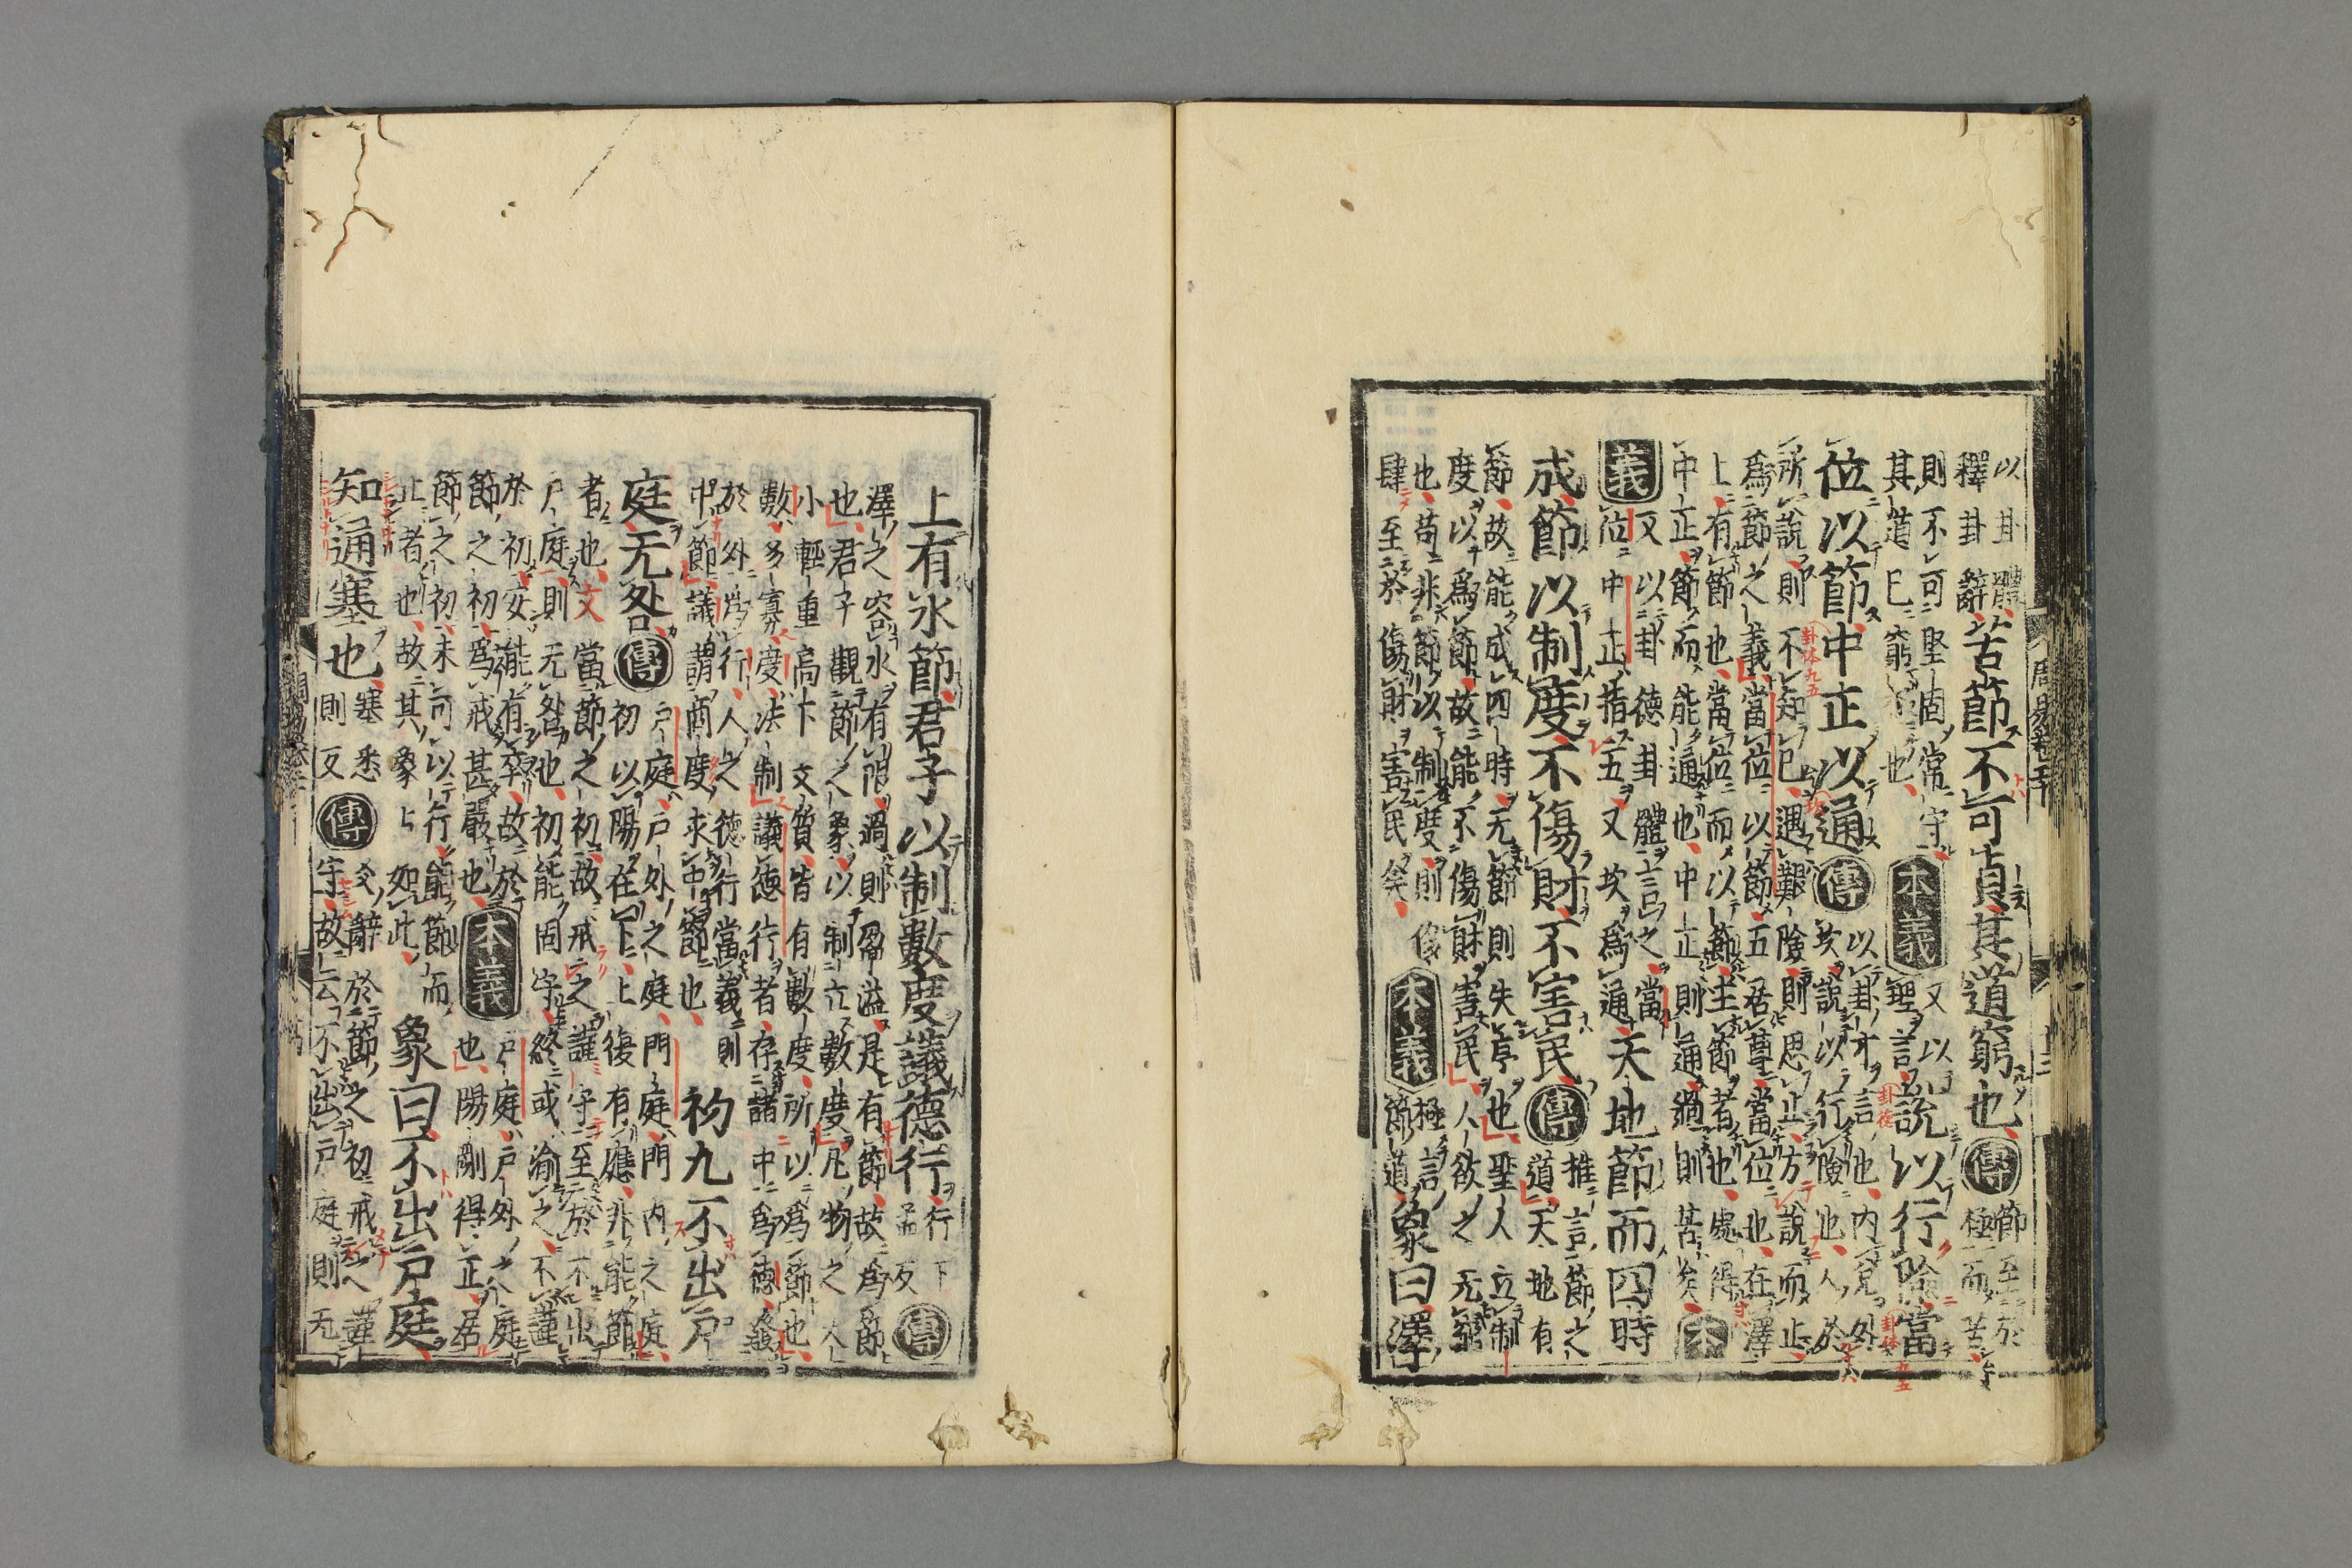 以卦體
釋卦辭
苦節不可貞其道窮也
傳
節至於
極而苦
則不可堅固常守
其道已窮極也
本義
又以
理言
說以行險當
位以節中正以通
傳
以卦才言也內兌外
坎說以行險也人於
所說則不知已遇艱險則思止方說而止
爲節之義當位以節五居尊當位也在澤
上有節也當位而以節主節者也處得
中正節而能通也中正則通過則苦矣
本
義
又以卦德卦體言之當
位中正指五又坎爲通
天地節而四時
成節以制度不傷財不害民
傳
推言節之
道天地有
節故能成四時无節則失序也聖人立制
度以爲節故能不傷財害民人欲之无窮
也苟非節以制度則侈
肆至於傷財害民矣
本義
極言
節道
象曰澤
上有水節君子以制數度議德行
行下
孟反
傳
澤之容水有限過則盈溢是有節故爲節
也君子觀節之象以制立數度凡物之大
小輕重高下文質皆有數度所以爲節也
數多寡度法制議德行者存諸中爲德發
於外爲行人之德行當義則
中節議謂商度求中節也
初九不出戶
庭无咎
傳
戶庭戶外之庭門庭門內之庭
初以陽在下上復有應非能節
者也又當節之初故戒之謹守至於不出
戶庭則无咎也初能固守終或渝之不謹
於初安能有卒故於
節之初爲戒甚嚴也
本義
戶庭戶外之庭
也陽剛得正居
節之初未可以行能節而
止者也故其象占如此
象曰不出戶庭
知通塞也
塞悉
則反
傳
爻辭於節之初戒之謹
守故云不出戶庭則无